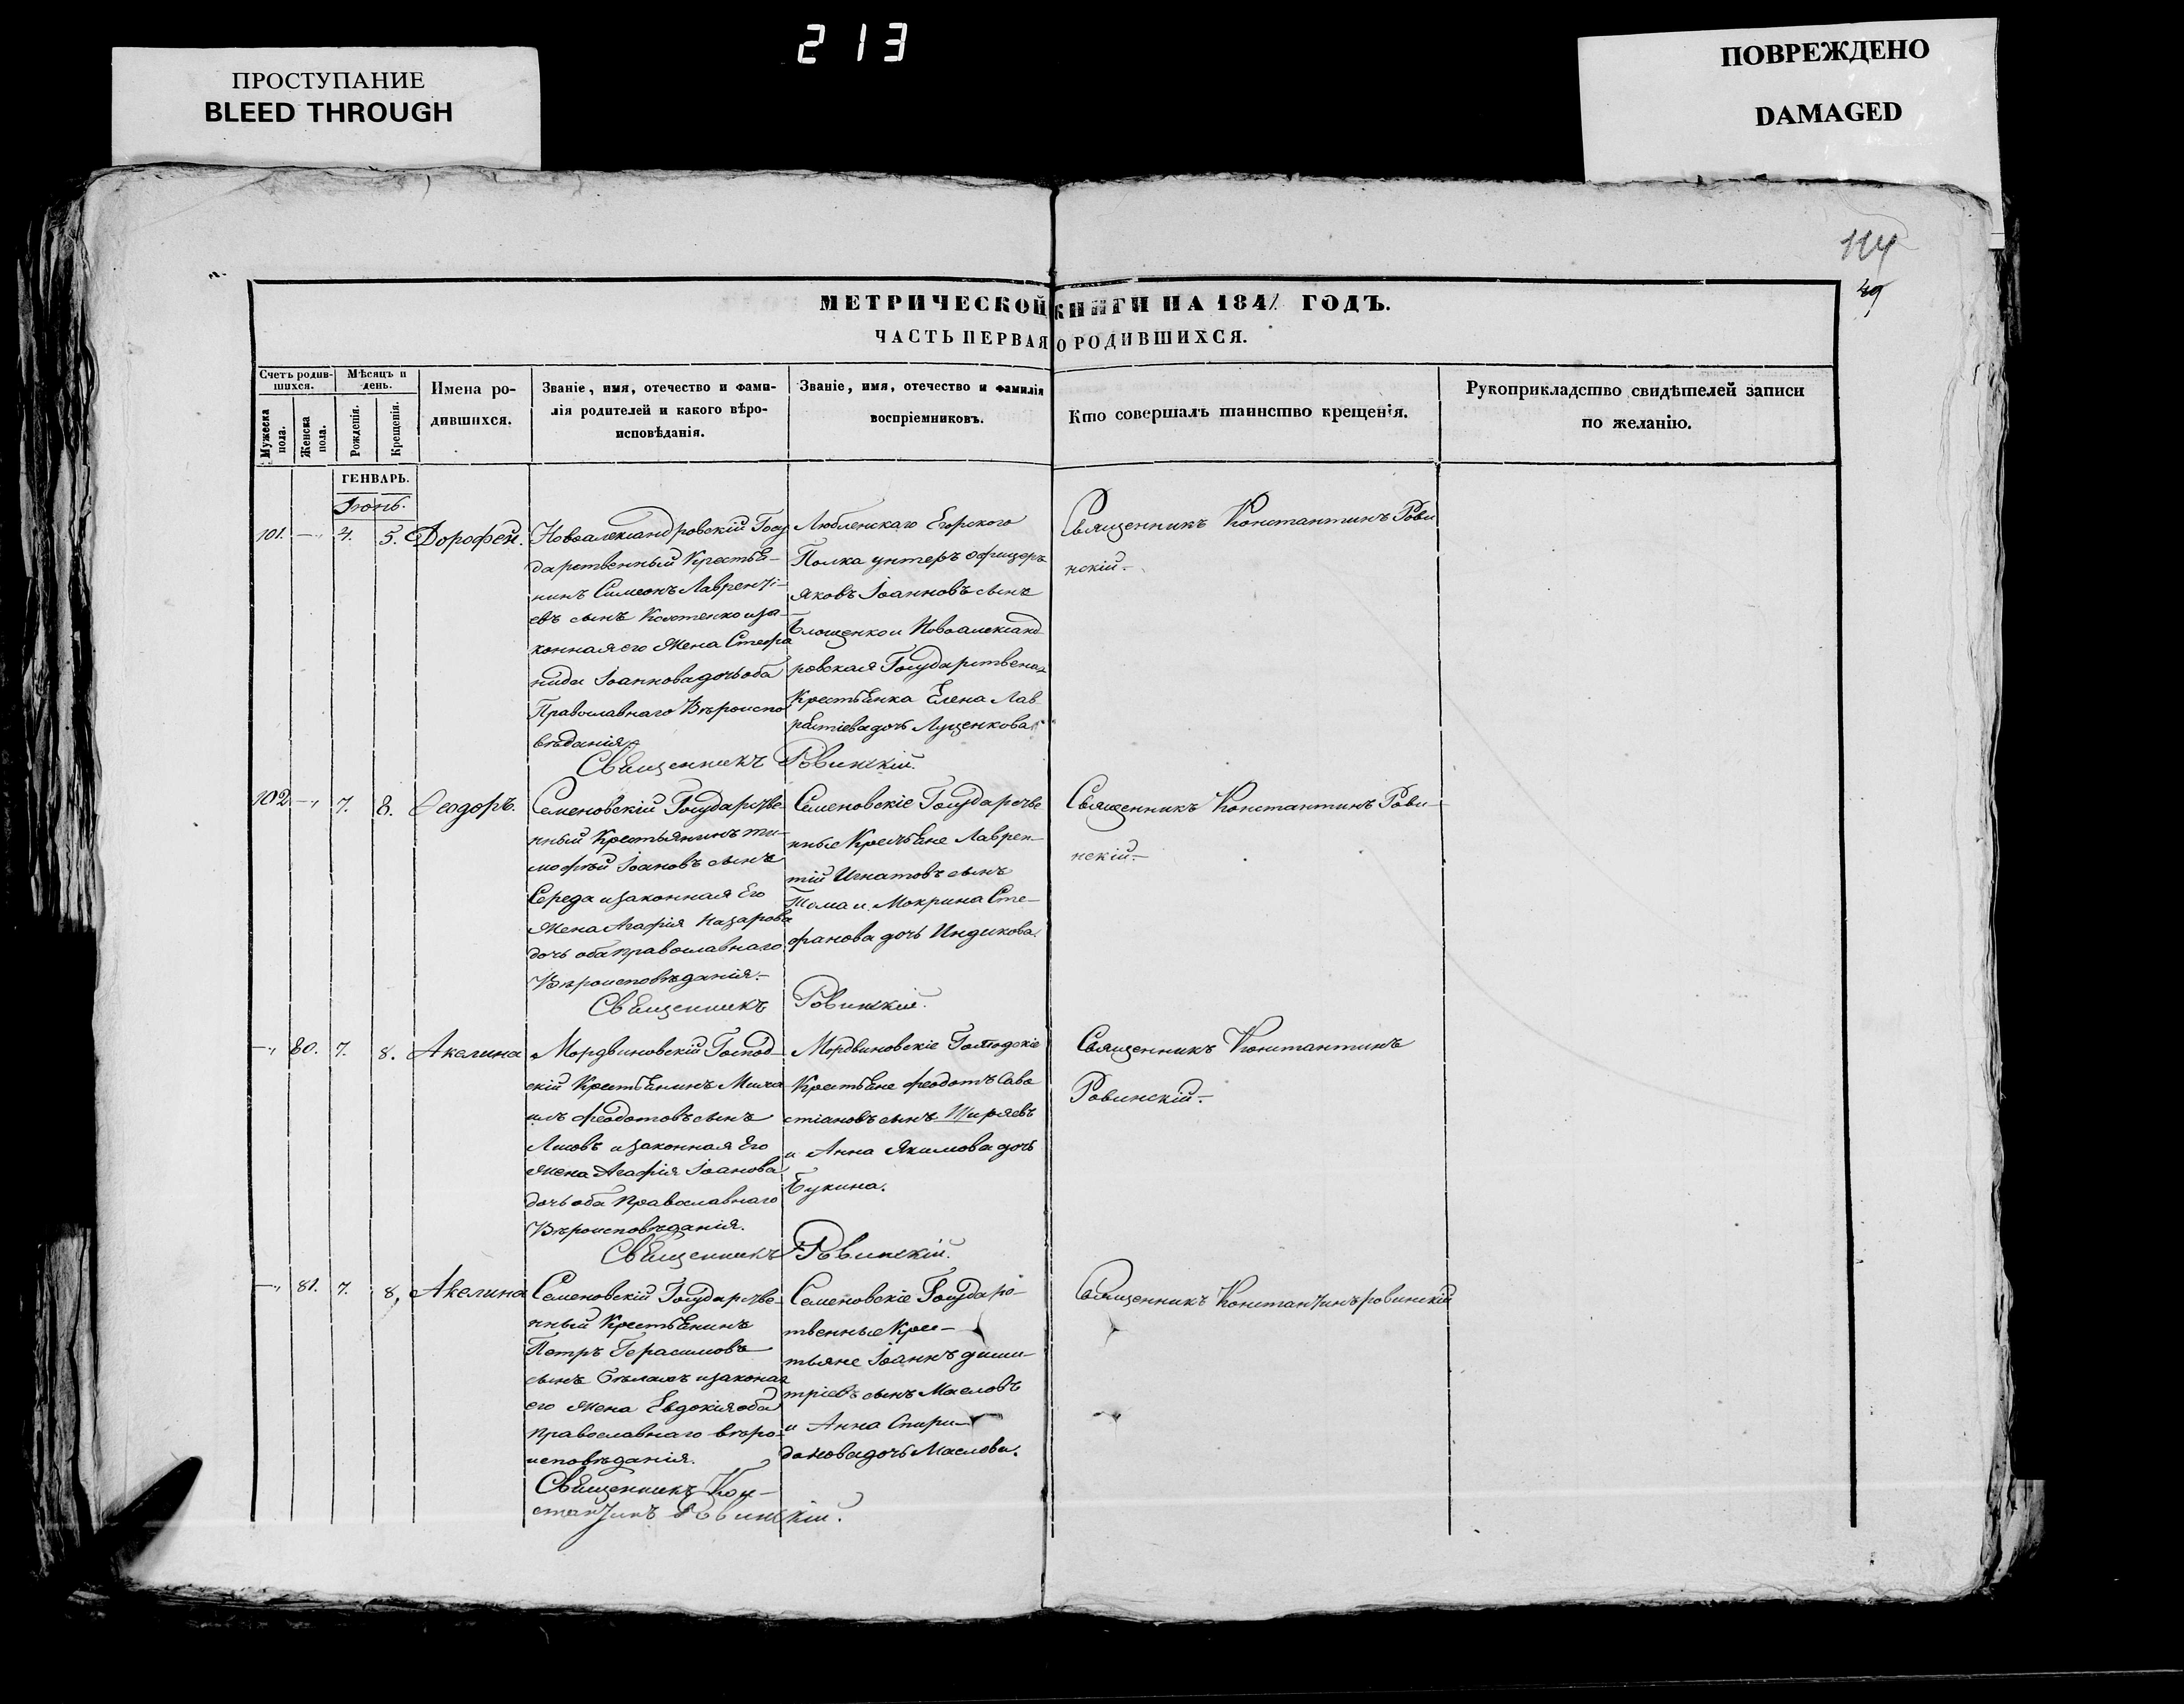 213
ПРОСТУПАНИЕ
BLEED THROUGH
ПОВРЕЖДЕНО
DAMAGED
114
МЕТРИЧЕСКОЙ КНИГИ НА 1841 ГОДЪ.
ЧАСТЬ ПЕРВАЯ О РОДИВШИХСЯ.
Счетъ родив-
шихся.
Мужеска пола.
Женска пола.
Мѣсяцъ и
день.
Рожденія.
Крещенія.
Имена ро-
дившихся.
Званіе, имя, отечество и фами-
лія родителей и какого вѣро-
исповѣданія.
Званіе, имя, отечество и фамилія
воспріемниковъ.
Кто совершалъ таинство крещенія.
Рукоприкладство свидѣтелей записи
по желанію.
ГЕНВАРЬ.
Іюнь.
101. — 4. 5. Дорофей.
Новоалександровскій Госу
дарственный Крестья-
нинъ Симеонъ Лавренті-
евъ сынъ Костенко и за-
конная его Жена Стефа
нида Іоаннова дочь оба
Православнаго Вѣроиспо
вѣданія.
Любленскаго Егорского
Полка унтеръ офицеръ
Яковъ Іоанновъ сынъ
Блощенко и Новоалександ
ровская Государственая
Крестьянка Елена Лав
рентіева дочь Луценкова
Священникъ Константинъ Рови
нскій.
Священникъ Ровинскій.
102 — 7. 8. Ѳеодоръ.
Семеновскій Государстве
нный Крестьянинъ Ти-
мофѣй Іоановъ сынъ
Середа и законная Его
Жена Агафія Назарова
дочь оба православнаго
Вѣроисповѣданія.
Семеновскіе Государстве
нные Крестьяне Лаврен-
тій Игнатовъ сынъ
Тома и Мокрина Сте-
фанова дочь Индикова.
Священникъ Константинъ Рови-
нскій.
Священникъ Ровинскій.
— 80. 7. 8. Акелина
Мордвиновскій Господ-
скій Крестьянинъ Михаи
илъ Феодотовъ сынъ
Лиовъ и законная Его
Жена Агафія Іоанова
дочь оба Православнаго
Вѣроисповѣданія.
Мордвиновскіе Господскіе
Крестьяне Феодотъ Сава
стіановъ сынъ Ширяевъ
и Анна Якимова дочь
Букина.
Священникъ Константинъ
Ровинскій.
Священникъ Ровинскій.
— 81. 7. 8. Акелина
Семеновскій Государстве-
нный Крестьянинъ
Петръ Герасимовъ
сынъ и законая
его Жена Евдокія оба
православнаго вѣро-
исповѣданія.
Семеновскіе Государс-
твенные Крес-
тьяне Іоаннъ Дими-
тріевъ сынъ Масловъ
и Анна Спири-
донова дочь Маслова.
Священникъ Константинъ Ровинскій
Священникъ Кон-
стантинъ Ровинскій.